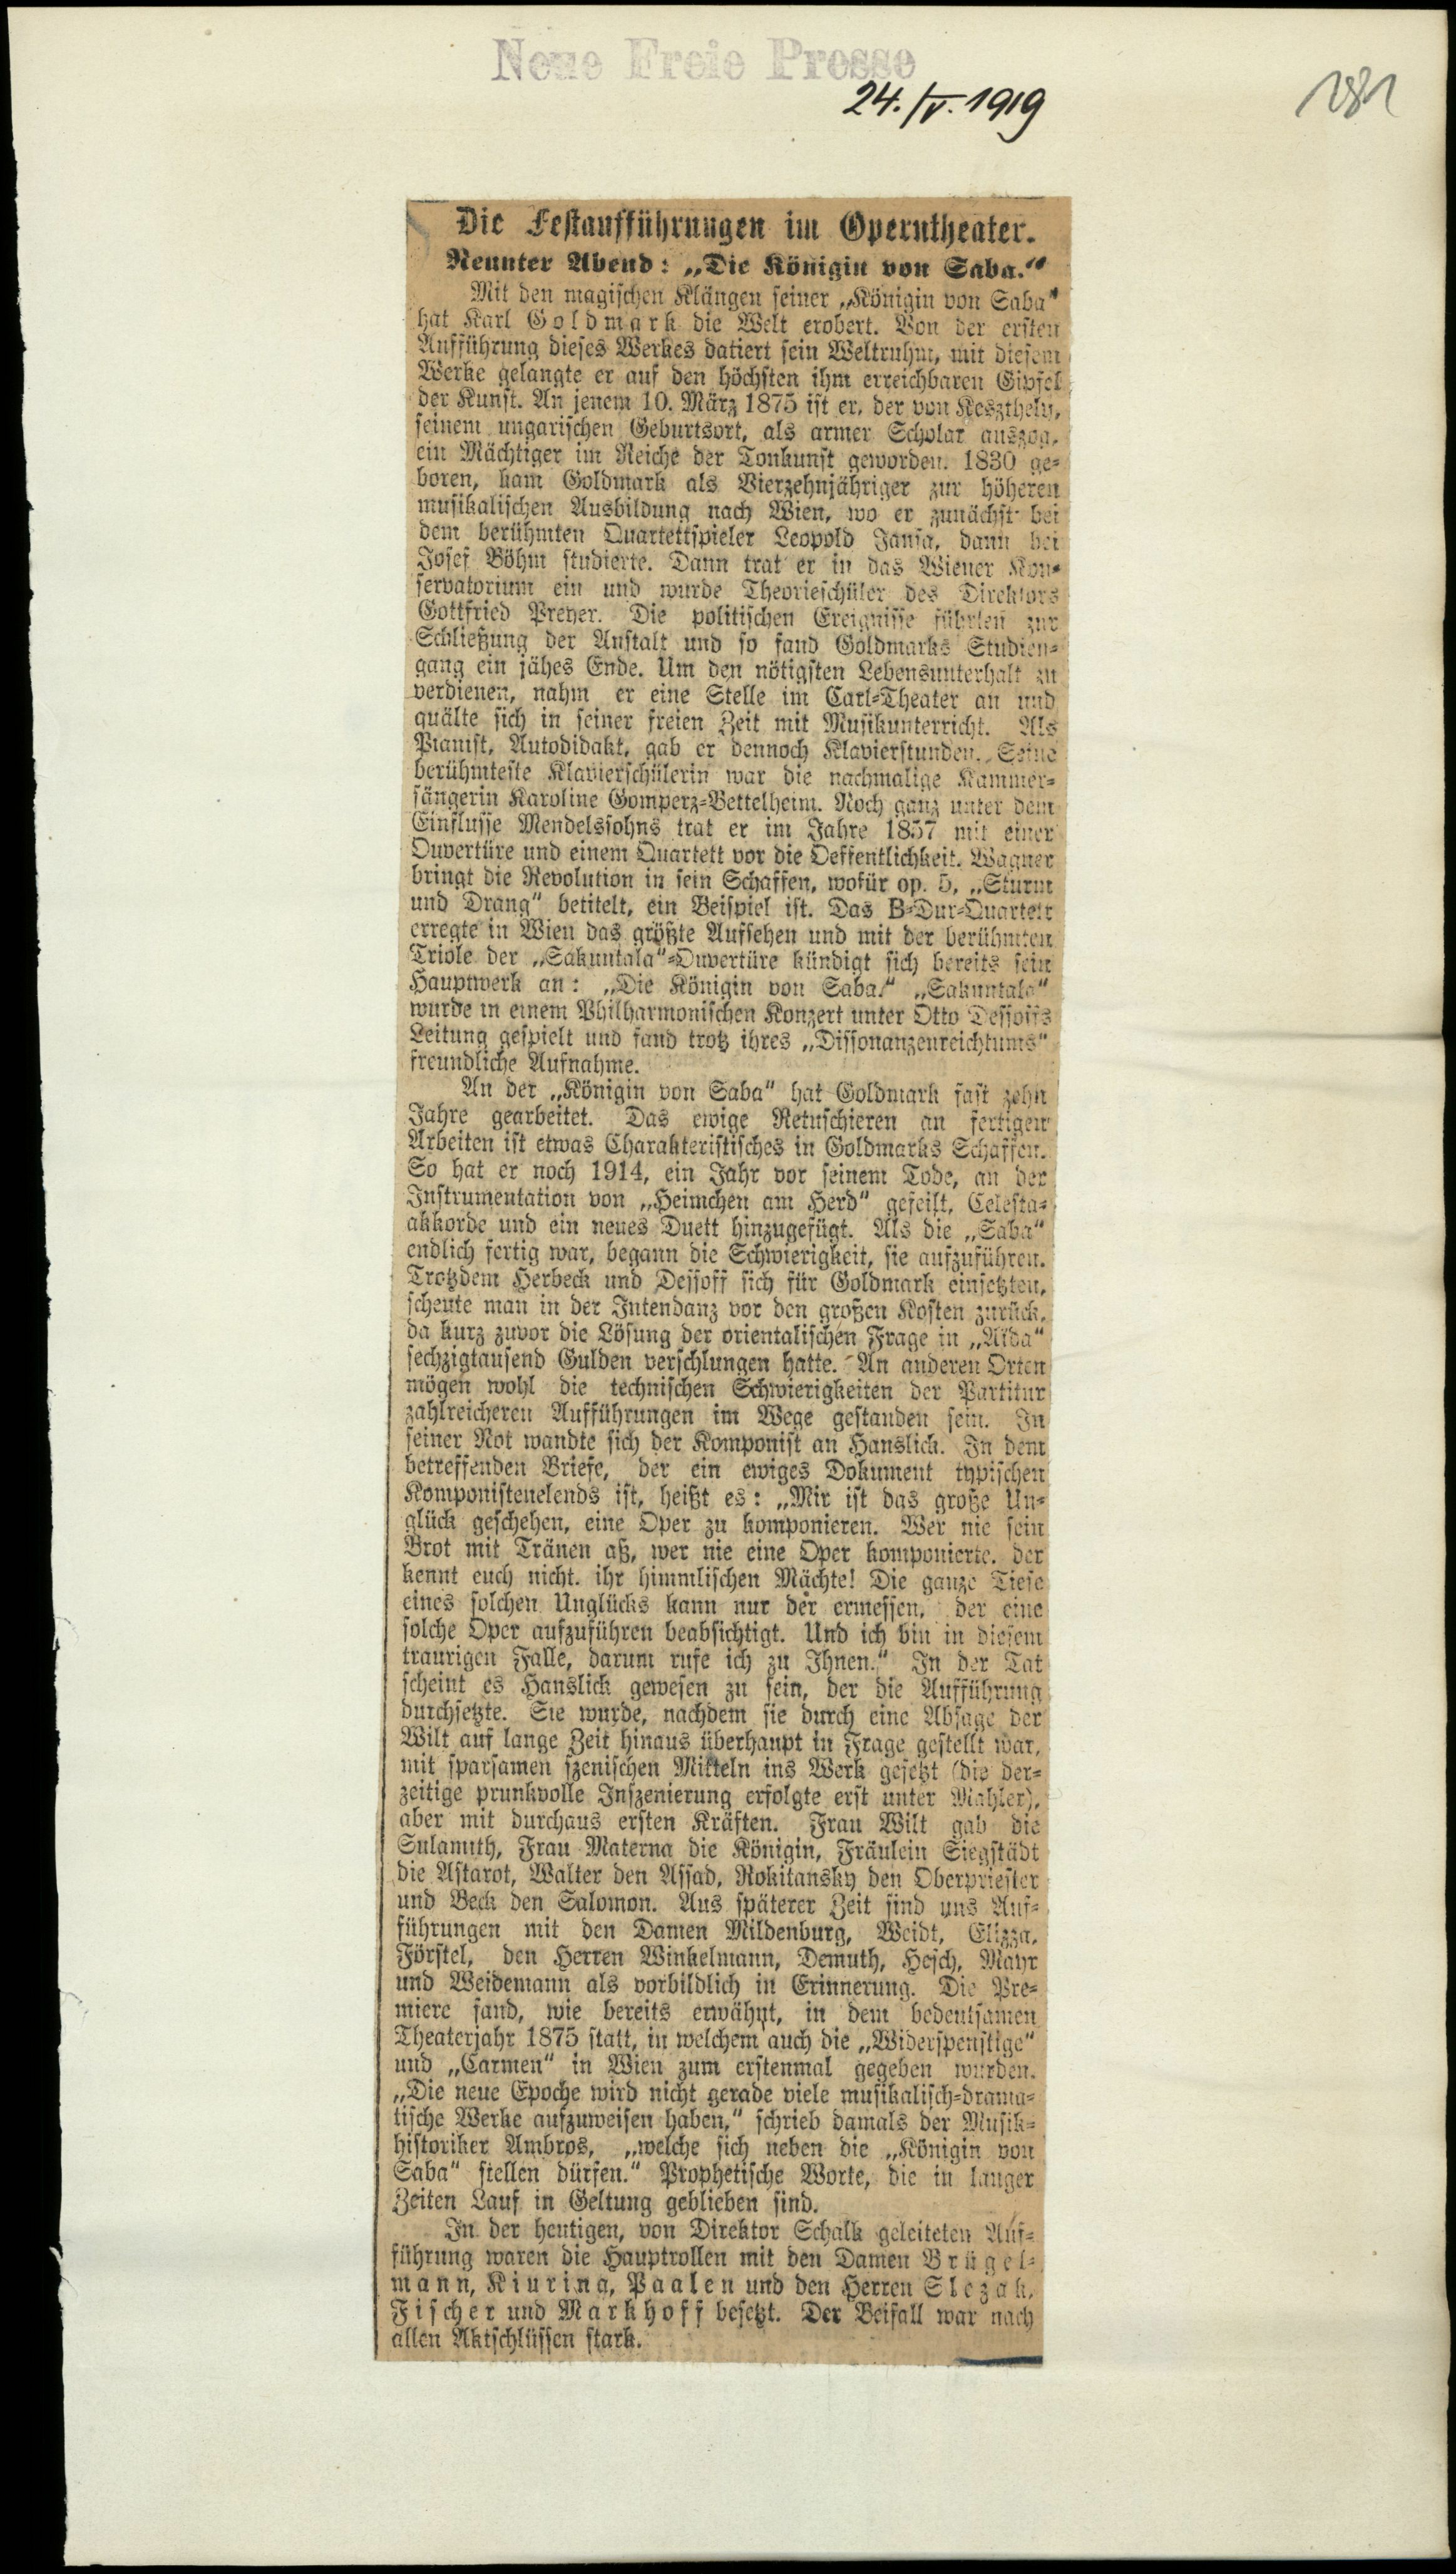 Neue Freie Presse
24./V. 1919
181
Die Festaufführungen im Operntheater.
Neunter Abend: „Die Königin von Saba.“
Mit den magischen Klängen seiner „Königin von Saba“
hat Karl Goldmark die Welt erobert. Von der ersten
Aufführung dieses Werkes datiert sein Weltruhm, mit diesem
Werke gelangte er auf den höchsten ihm erreichbaren Gipfel
der Kunst. An jenem 10. März 1875 ist er, der von Keszthely,
seinem ungarischen Geburtsort, als armer Scholar auszog,
ein Mächtiger im Reiche der Tonkunst geworden. 1830 ge-
boren, kam Goldmark als Vierzehnjähriger zur höheren
musikalischen Ausbildung nach Wien, wo er zunächst bei
dem berühmten Quartettspieler Leopold Jansa, dann bei
Josef Böhm studierte. Dann trat er in das Wiener Kon-
servatorium ein und wurde Theorieschüler des Direktors
Gottfried Preyer. Die politischen Ereignisse führten zur
Schließung der Anstalt und so fand Goldmarks Studien-
gang ein jähes Ende. Um den nötigsten Lebensunterhalt zu
verdienen, nahm er eine Stelle im Carl-Theater an und
quälte sich in seiner freien Zeit mit Musikunterricht. Als
Pianist, Autodidakt, gab er dennoch Klavierstunden. Seine
berühmteste Klavierschülerin war die nachmalige Kammer-
sängerin Karoline Gomperz-Bettelheim. Noch ganz unter dem
Einflusse Mendelssohns trat er im Jahre 1857 mit einer
Ouvertüre und einem Quartett vor die Oeffentlichkeit. Wagner
bringt die Revolution in sein Schaffen, wofür op. 5, „Sturm
und Drang“ betitelt, ein Beispiel ist. Das B-Dur-Quartett
erregte in Wien das größte Aufsehen und mit der berühmten
Triole der „Sakuntala“-Ouvertüre kündigt sich bereits sein
Hauptwerk an: „Die Königin von Saba.“ „Sakuntala“
wurde in einem Philharmonischen Konzert unter Otto Dessoffs
Leitung gespielt und fand trotz ihres „Dissonanzenreichtums“
freundliche Aufnahme.
An der „Königin von Saba“ hat Goldmark fast zehn
Jahre gearbeitet. Das ewige Retuschieren an fertigen
Arbeiten ist etwas Charakteristisches in Goldmarks Schaffen.
So hat er noch 1914, ein Jahr vor seinem Tode, an der
Instrumentation von „Heimchen am Herd“ gefeilt, Celesta-
akkorde und ein neues Duett hinzugefügt. Als die „Saba“
endlich fertig war, begann die Schwierigkeit, sie aufzuführen.
Trotzdem Herbeck und Dessoff sich für Goldmark einsetzten,
scheute man in der Intendanz vor den großen Kosten zurück,
da kurz zuvor die Lösung der orientalischen Frage in „Aïda“
sechzigtausend Gulden verschlungen hatte. An anderen Orten
mögen wohl die technischen Schwierigkeiten der Partitur
zahlreicheren Aufführungen im Wege gestanden sein. In
seiner Not wandte sich der Komponist an Hanslick. In dem
betreffenden Briefe, der ein ewiges Dokument typischen
Komponistenelends ist, heißt es: „Mir ist das große Un-
glück geschehen, eine Oper zu komponieren. Wer nie sein
Brot mit Tränen aß, wer nie eine Oper komponierte, der
kennt euch nicht, ihr himmlischen Mächte! Die ganze Tiefe
eines solchen Unglücks kann nur der ermessen, der eine
solche Oper aufzuführen beabsichtigt. Und ich bin in diesem
traurigen Falle, darum rufe ich zu Ihnen.“ In der Tat
scheint es Hanslick gewesen zu sein, der die Aufführung
durchsetzte. Sie wurde, nachdem sie durch eine Absage der
Wilt auf lange Zeit hinaus überhaupt in Frage gestellt war,
mit sparsamen szenischen Mitteln ins Werk gesetzt (die der-
zeitige prunkvolle Inszenierung erfolgte erst unter Mahler),
aber mit durchaus ersten Kräften. Frau Wilt gab die
Sulamith, Frau Materna die Königin, Fräulein Siegstädt
die Astarot, Walter den Assad, Rokitansky den Oberpriester
und Beck den Salomon. Aus späterer Zeit sind uns Auf-
führungen mit den Damen Mildenburg, Weidt, Elizza,
Förstel, den Herren Winkelmann, Demuth, Hesch, Mayr
und Weidemann als vorbildlich in Erinnerung. Die Pre-
miere fand, wie bereits erwähnt, in dem bedeutsamen
Theaterjahr 1875 statt, in welchem auch die „Widerspenstige“
und „Carmen“ in Wien zum erstenmal gegeben wurden.
„Die neue Epoche wird nicht gerade viele musikalisch-drama-
tische Werke aufzuweisen haben,“ schrieb damals der Musik-
historiker Ambros, „welche sich neben die „Königin von
Saba“ stellen dürfen.“ Prophetische Worte, die in langer
Zeiten Lauf in Geltung geblieben sind.
In der heutigen, von Direktor Schalk geleiteten Auf-
führung waren die Hauptrollen mit den Damen Brügel-
mann, Kiurina, Paalen und den Herren Slezak,
Fischer und Markhoff besetzt. Der Beifall war nach
allen Aktschlüssen stark.